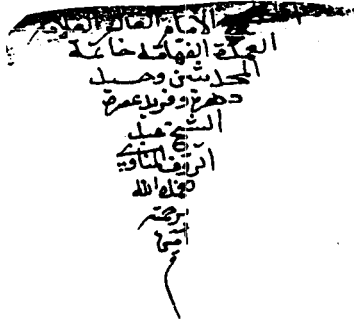 الشيخ الامام العالم العلامة
العمدة الفهامة خاتمة
المحدثين وحيد
دهره وفريد عصره
الشيخ عبد
الرؤف المناوي
تغمده الله
برحمته
آمين